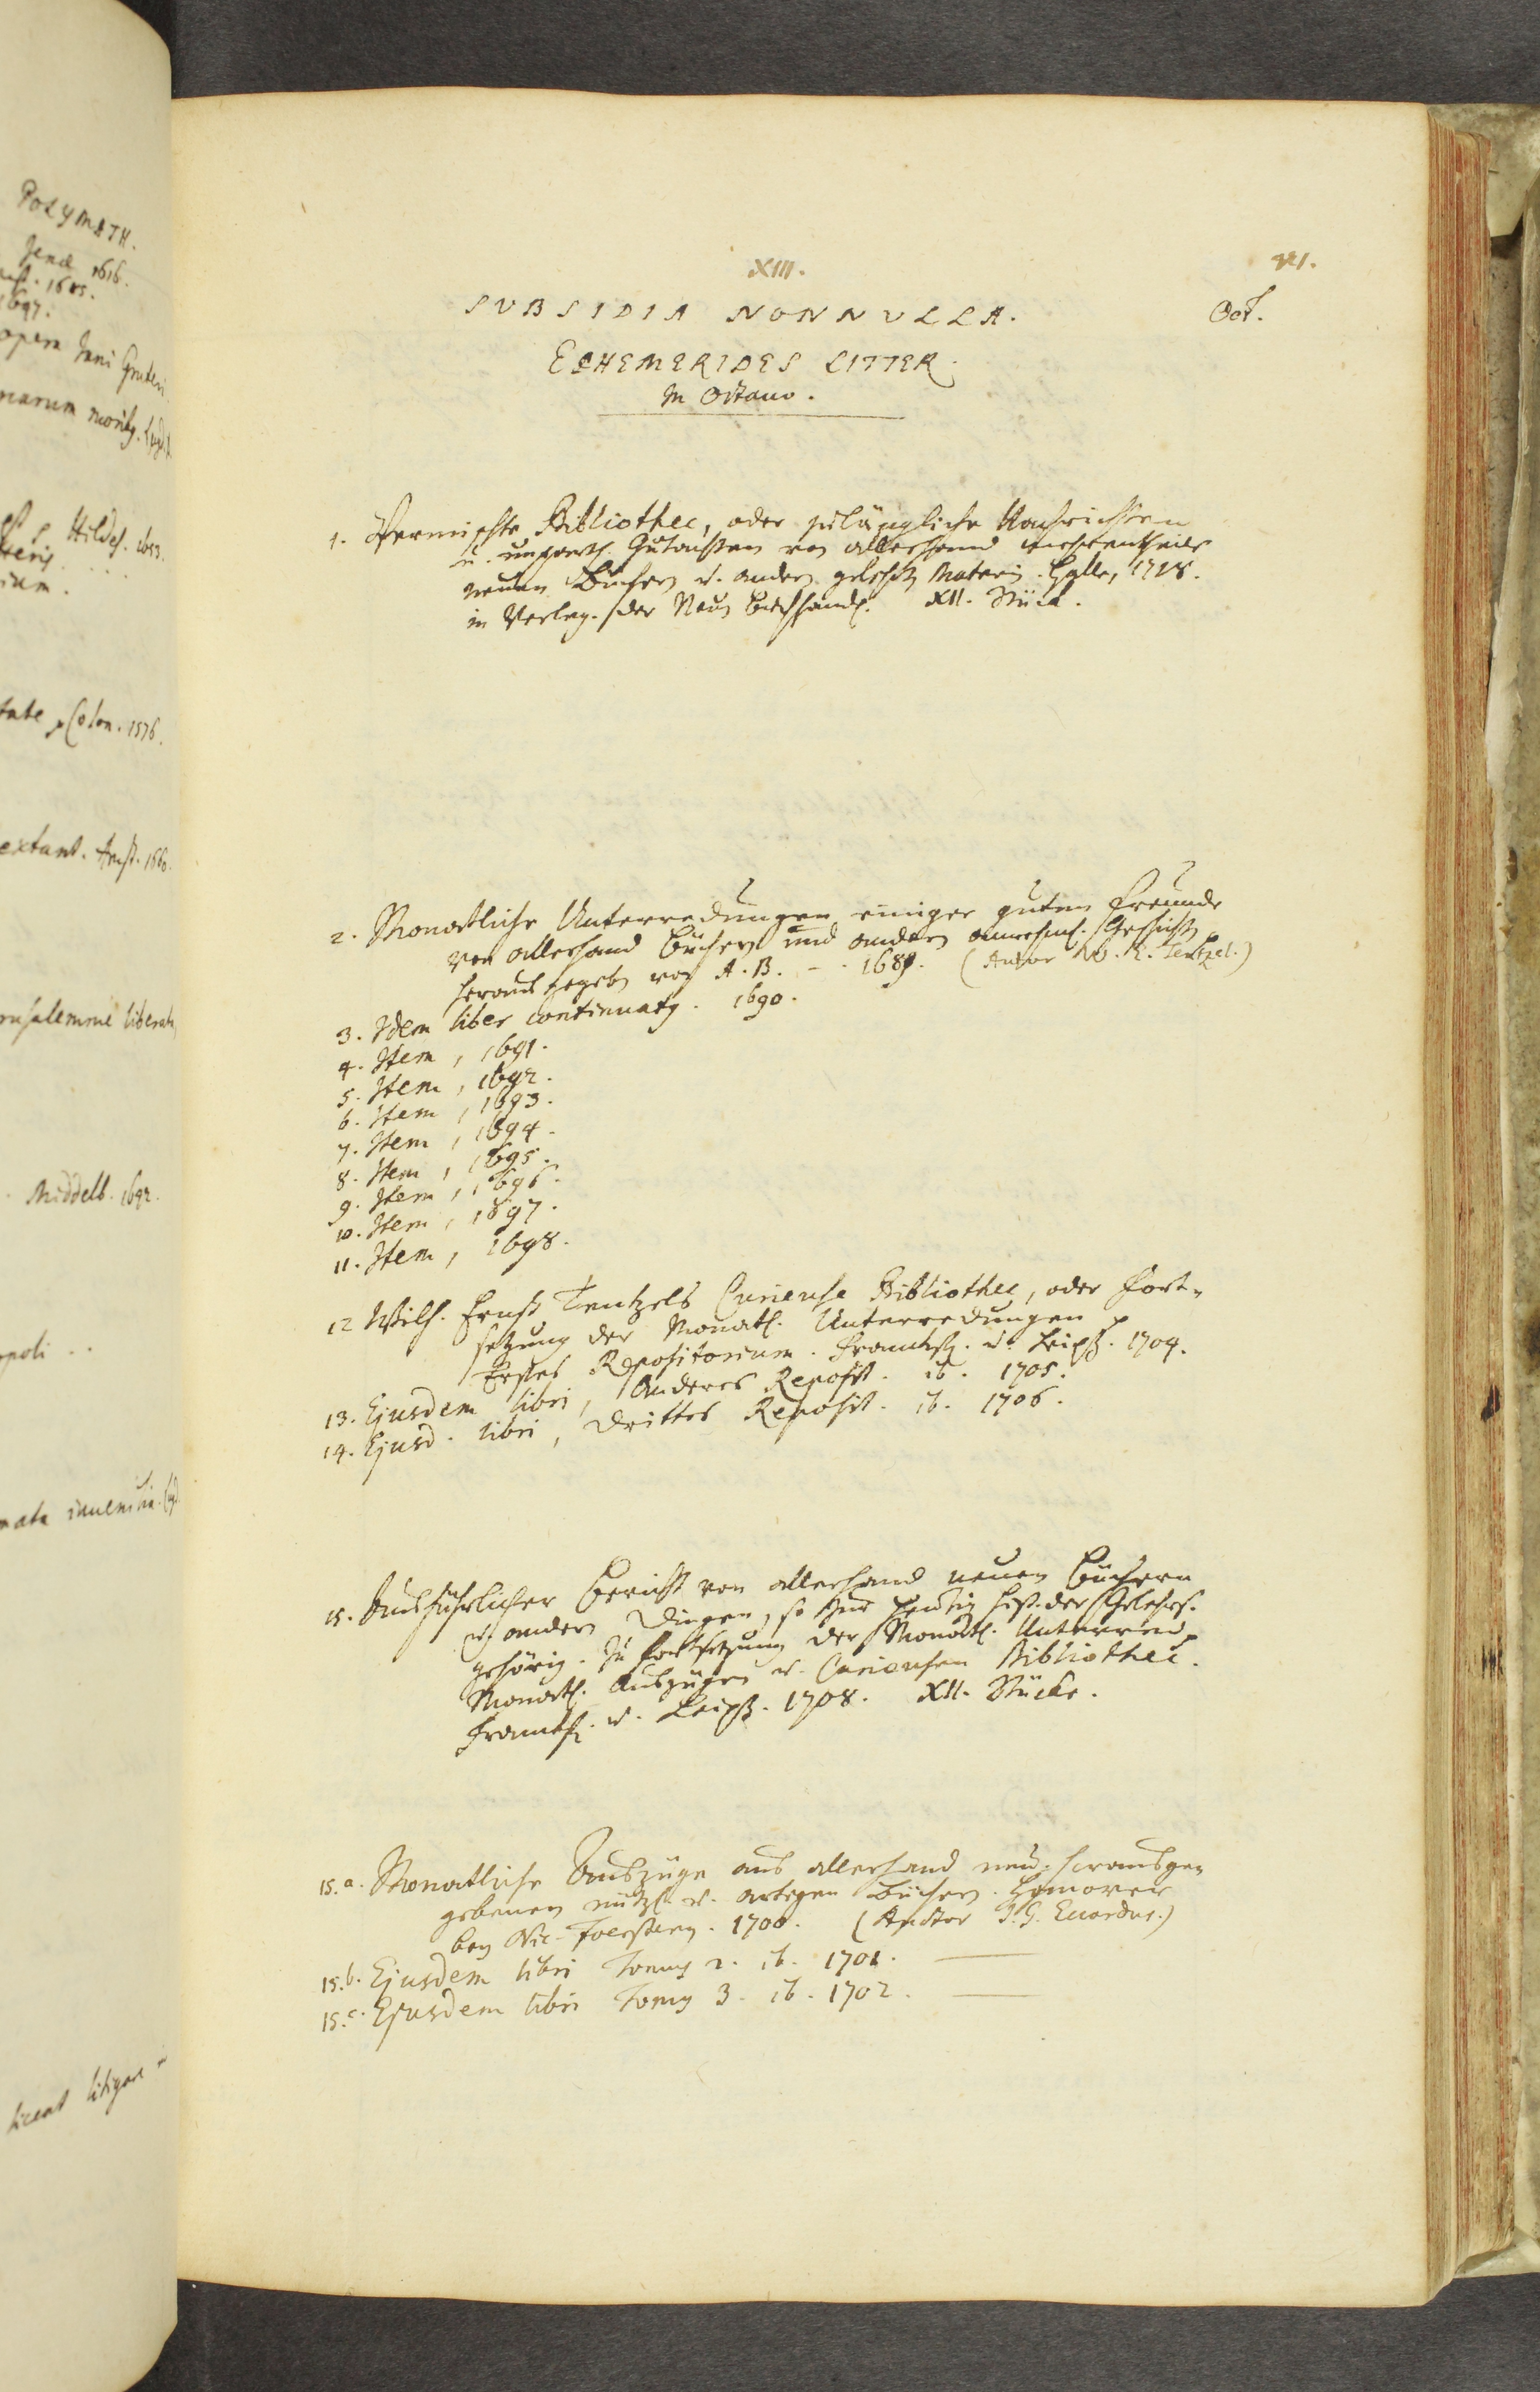 POLYMATH.
Jenæ 1616.
1685.
1697.
opera Jani Gruteri
Hildes. 1653.
Colon. 1576.
extant. Amst. 1660.
Middelb. 1692.
XIII.
VI.
SUBSIDIA NONNULLA.
Oct.
EPHEMERIDES LITTER.
In Octavo.
1. Vermischte Bibliothec, oder zulängliche Nachrichten
u. unparth. Gutachten von allerhand mehrentheils
neuen Büchern u. andern gelehrten Materien. Halle, 1718.
in Verleg. der Neuen Buchhandl. XII. Stück.
2. Monatliche Unterredungen einiger guten Freunde
von allerhand Büchern und andern annehml. Geschichten
herausgegeben von A. B. - . 1689. (Autor W. E. Tentzel.)
3. Idem liber continuatus. 1690.
4. Item, 1691.
5. Item, 1692.
6. Item, 1693.
7. Item, 1694.
8. Item, 1695.
9. Item, 1696.
10. Item, 1697.
11. Item, 1698.
12 Wilh. Ernst Tentzels Curieuse Bibliothec, oder Fort-
setzung der Monatl. Unterredungen
Erstes Repositorium. Franckf. u. Leipz. 1704.
13. Ejusdem libri, Anderes Reposit. ib. 1705.
14. Ejusd. libri, Drittes Reposit. ib. 1706.
15. Ausführlicher Bericht von allerhand neuen Büchern
u. andern Dingen, so zur heutigen Hist. der Gelehrs.
gehörig. Zu Fortsetzung der Monatl. Unterred.
Monatl. Auszügen u. Curieusen Bibliothec.
Franckf. u. Leipz. 1708. XII. Stücke.
15.a. Monatliche Auszüge aus allerhand neu-herausge-
gebenen nützl. u. artigen Büchern. Hannover
bey Nic. Foerstern. 1700. (Auctor J. G. Eccardus.)
15.b. Ejusdem libri Tomus 2. ib. 1701.
15.c. Ejusdem libri Tomus 3. ib. 1702.